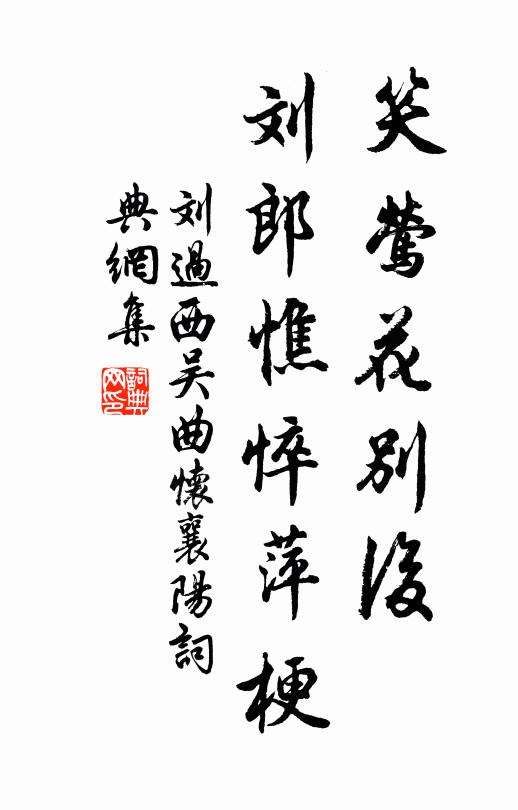 笑莺花别後
刘郎憔悴萍梗
刘過西吴曲懷襄陽詞
典網集
詞典網印